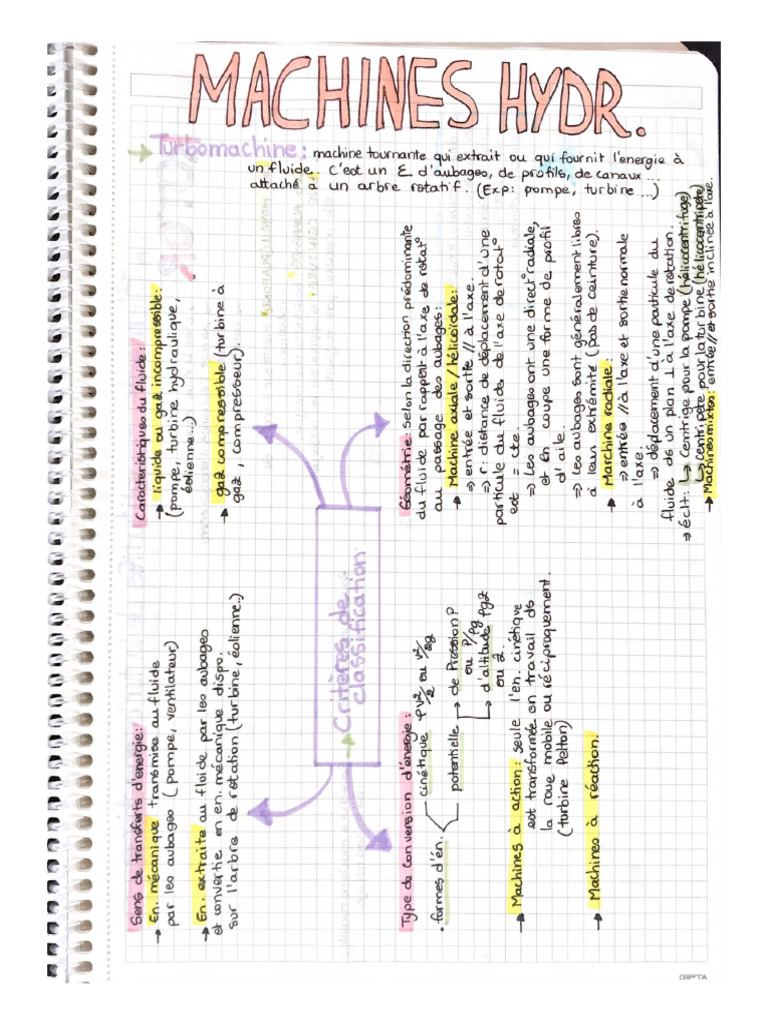 MACHINES HYDR.
→ Turbomachine : machine tournante qui extrait ou qui fournit l'energie à
un fluide. C'est un Σ d'aubages, de profils, de canaux ...
attaché à un arbre rotatif. (Exp: pompe, turbine ...)
→ Critères de
classification
Sens de transferts d'energie :
→ En. mécanique transmise au fluide
par les aubages (pompe, ventilateur)
→ En. extraite au fluide par les aubages
et convertie en en. mécanique dispo.
sur l'arbre de rotation (turbine, éolienne..)
Caracteristiques du fluide :
→ liquide ou gaz incompressible :
(pompe, turbine hydraulique,
éolienne...)
→ gaz compressible (turbine à
gaz, compresseur).
Type de Conversion d'énergie :
• formes d'én.
cinétique ρv²/2 ou v²/2g
potentielle
→ de Pression P
ou P/ρg
→ d'altitude ρgz
ou z.
→ Machines à action : seule l'en. cinétique
est transformée en travail ds
la roue mobile ou réciproquement.
(turbine Pelton)
→ Machines à réaction.
Géométrie : Selon la direction prédominante
du fluide par rapport à l'axe de rotat°
au passage des aubages :
→ Machine axiale / hélicoïdale :
⇒ entrée et sortie // à l'axe.
⇒ r : distance de déplacement d'une
particule du fluide de l'axe de rotat°
est = cte.
⇒ Les aubages ont une direct° radiale,
et en coupe une forme de profil
d'aile.
⇒ Les aubages sont généralement libres
à leur extrémité (pas de ceinture).
→ Marchine radiale :
⇒ entrée // à l'axe et sortie normale
à l'axe.
⇒ déplacement d'une particule du
fluide ds un plan ⊥ à l'axe de rotation.
⇒ éclt : ↳ Centrige pour la pompe (hélicocentrifuge)
↳ Centripète pour la turbine (hélicocentripète)
→ Machines mixtes : entrée // et sortie inclinée à l'axe.
GIPTA